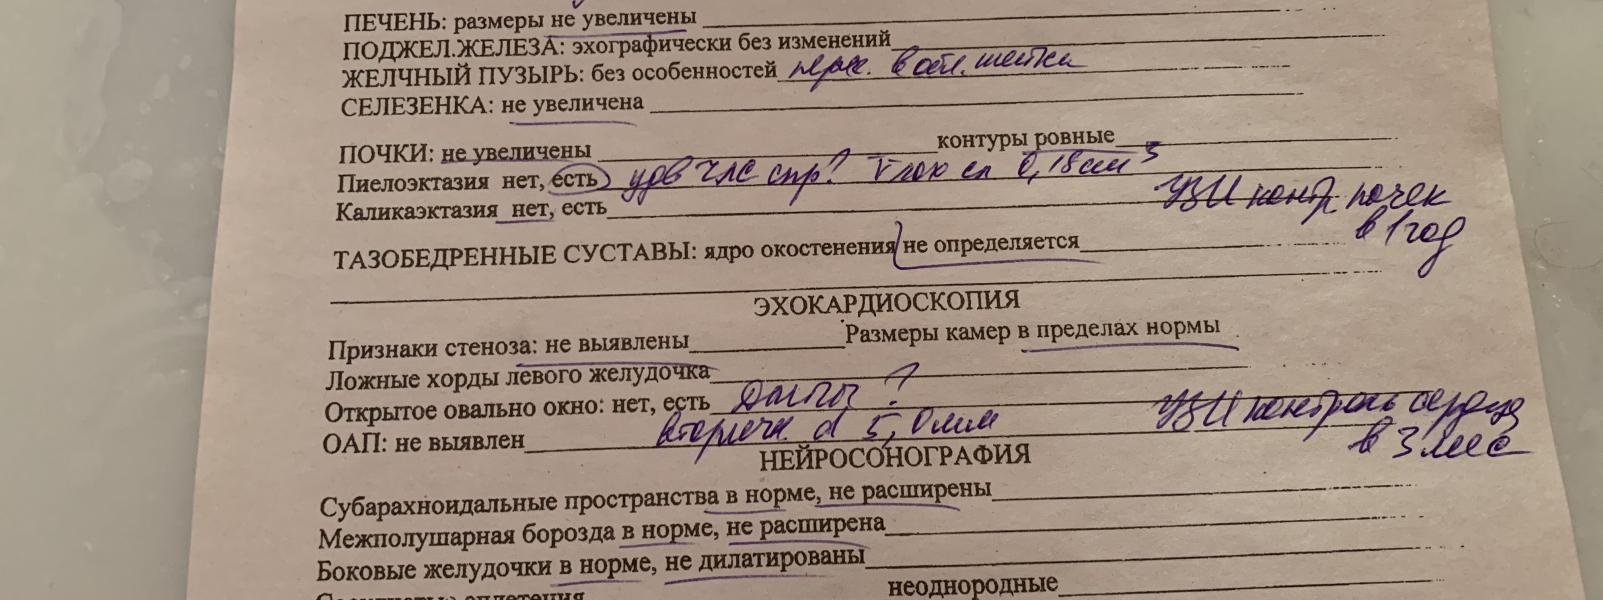 ПЕЧЕНЬ: размеры не увеличены
ПОДЖЕЛ.ЖЕЛЕЗА: эхографически без изменений
ЖЕЛЧНЫЙ ПУЗЫРЬ: без особенностей в обл. шейки
СЕЛЕЗЕНКА: не увеличена
ПОЧКИ: не увеличены контуры ровные
Пиелоэктазия нет, есть удв члс спр? сл 0,18 см³
Каликаэктазия нет, есть УЗИ контр почек
в 1 год
ТАЗОБЕДРЕННЫЕ СУСТАВЫ: ядро окостенения не определяется
ЭХОКАРДИОСКОПИЯ
Признаки стеноза: не выявлены Размеры камер в пределах нормы
Ложные хорды левого желудочка
Открытое овально окно: нет, есть ДМПП? УЗИ контроль сердца
ОАП: не выявлен вторичн. d 5,0 мм в 3 мес
НЕЙРОСОНОГРАФИЯ
Субарахноидальные пространства в норме, не расширены
Межполушарная борозда в норме, не расширена
Боковые желудочки в норме, не дилатированы
неоднородные